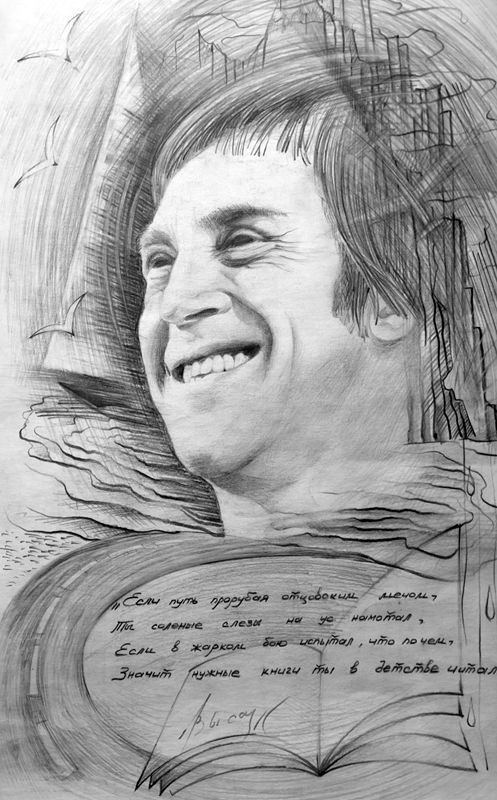 „Если путь прорубая отцовским мечом,
Ты соленые слезы на ус намотал,
Если в жарком бою испытал, что почем,
Значит нужные книги ты в детстве читал
Высоц